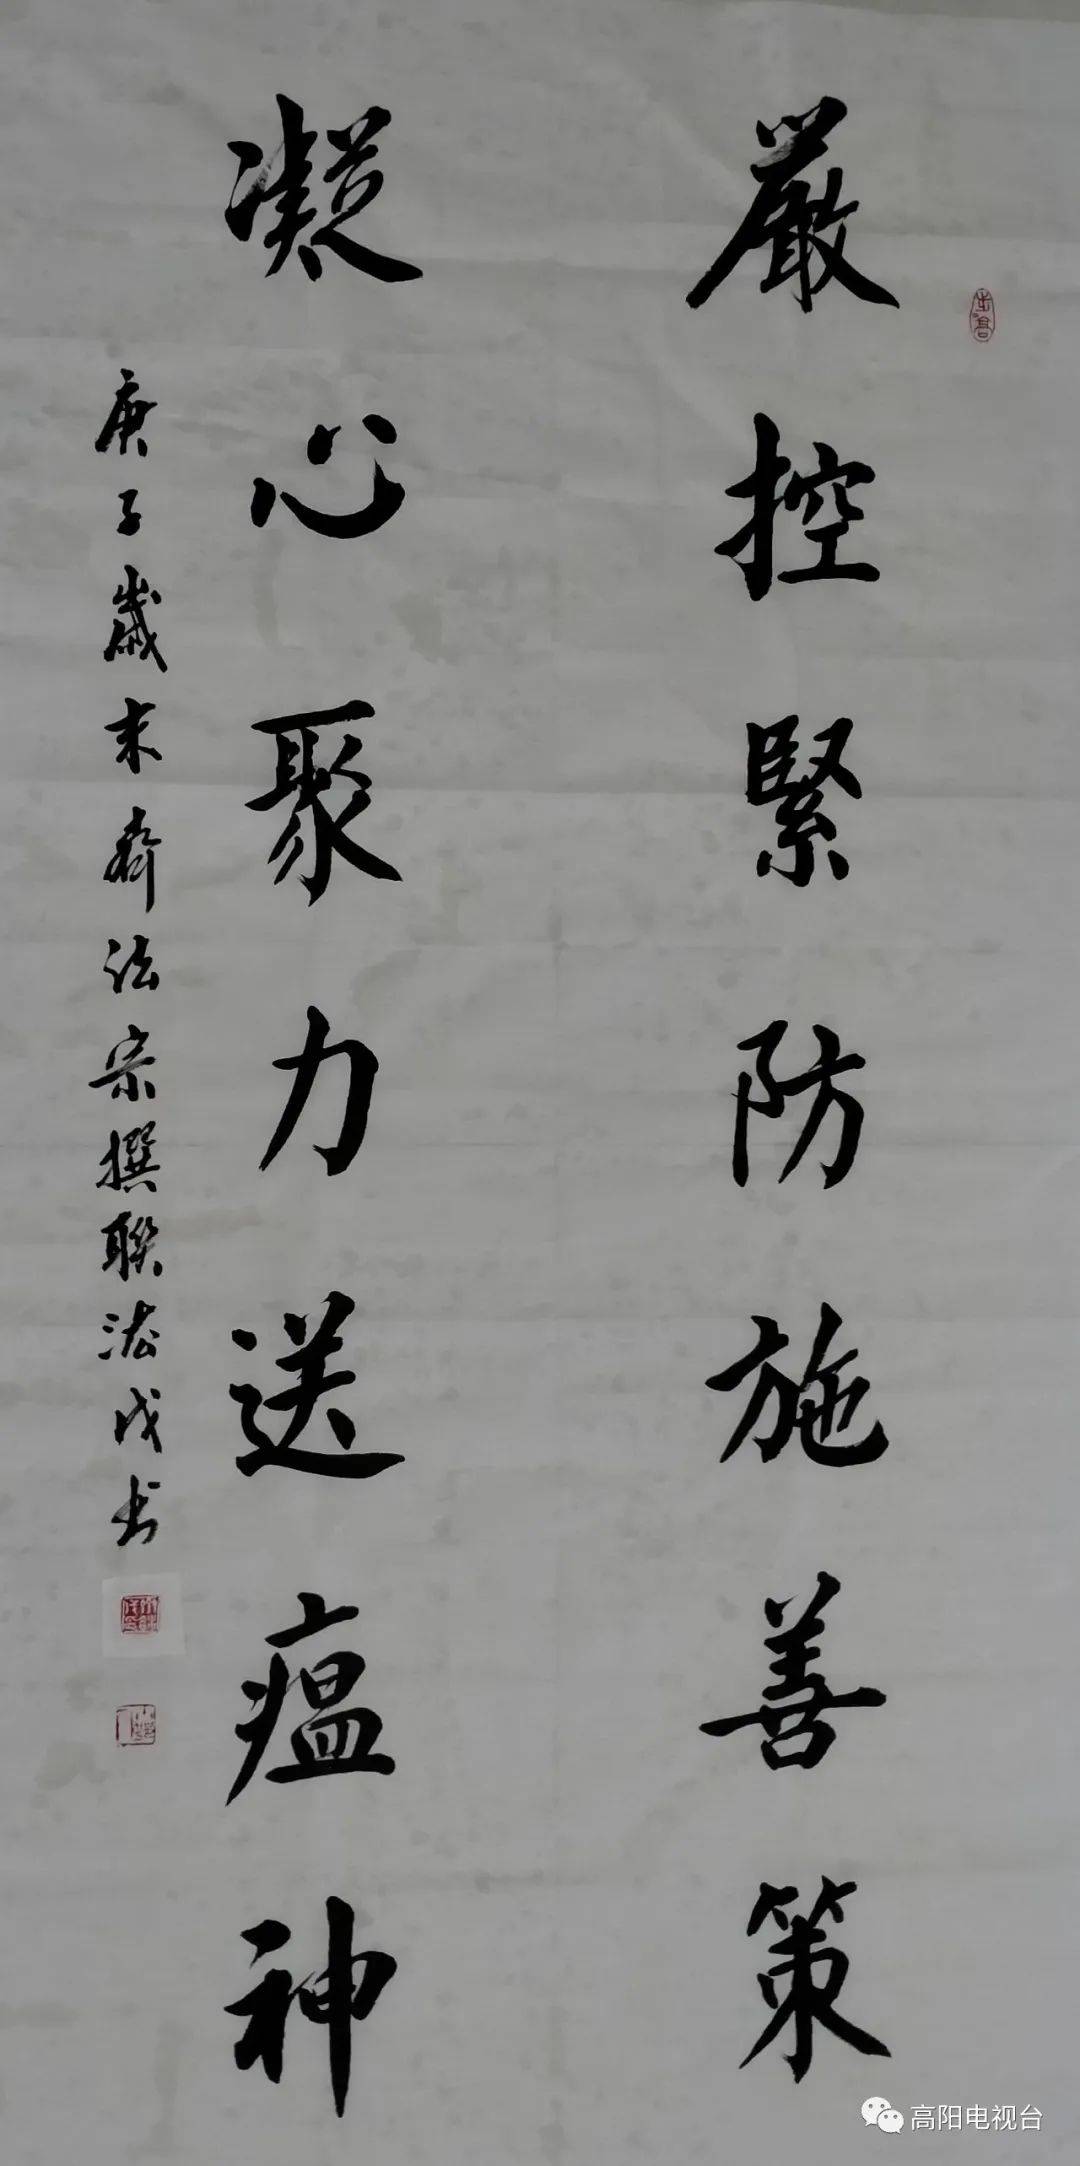 嚴控緊防施善策
凝心聚力送瘟神
庚子歲末齊法宗撰聯法戊书
高阳电视台